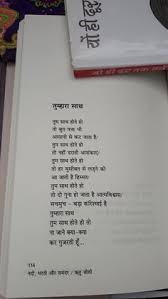 यों ही
तुम्हारा साथ
तुम साथ होते हो
तो बुरा वक्त भी
आसानी से कट जाता है!
तुम साथ होते हो
तो नहीं डराती आशंकाएं!
तुम साथ होते हो
तो हर मुसीबत से लड़ने को
आ जाती है हिम्मत!
तुम साथ होते हो
तो दो गुना हो जाता है आत्मविश्वास!
सचमुच - बड़ा करिश्माई है
तुम्हारा साथ
तुम साथ होते हो तो
पा जाने क्या-क्या
कर गुजरती हूँ...
114
नदी, धरती और समंदर / ऋतु जोशी